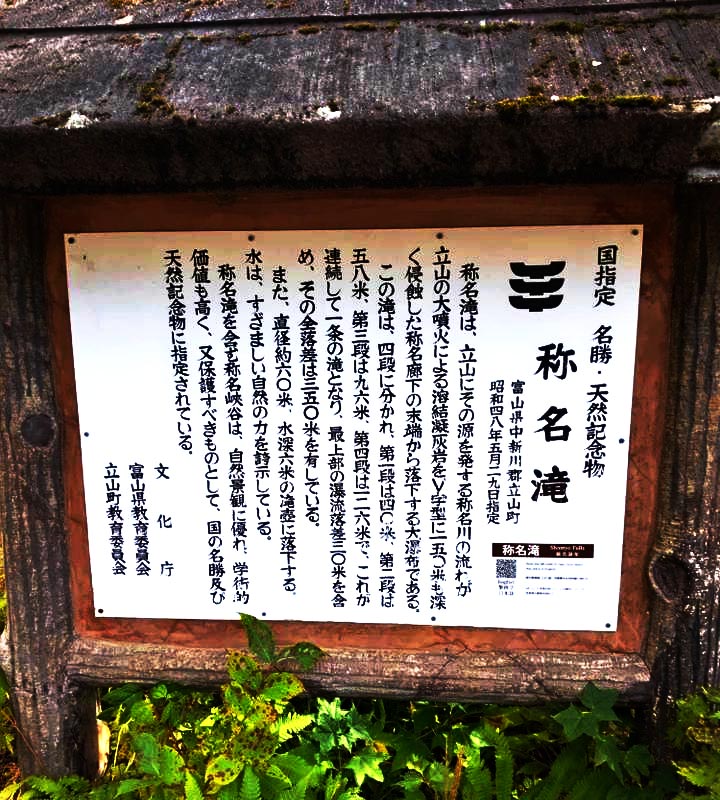 国指定 名勝・天然記念物
称名滝
富山県中新川郡立山町
昭和四八年五月二九日指定
称名滝は、立山にその源を発する称名川の流れが
立山の大噴火による溶結凝灰岩をV字型に一五〇米も深
く侵蝕した称名廊下の末端から落下する大瀑布である。
この滝は、四段に分かれ、第一段は四〇米、第二段は
五八米、第三段は九六米、第四段は一二六米で、これが
連続して一条の滝となり、最上部の瀑流落差三〇米を含
め、その全落差は三五〇米を有している。
また、直径約六〇米、水深六米の滝壺に落下する
水は、すざましい自然の力を誇示している。
称名滝を含む称名峡谷は、自然景観に優れ、学術的
価値も高く、又保護すべきものとして、国の名勝及び
天然記念物に指定されている。
文化庁
富山県教育委員会
立山町教育委員会
称名滝 Shomyo Falls
English
日本語